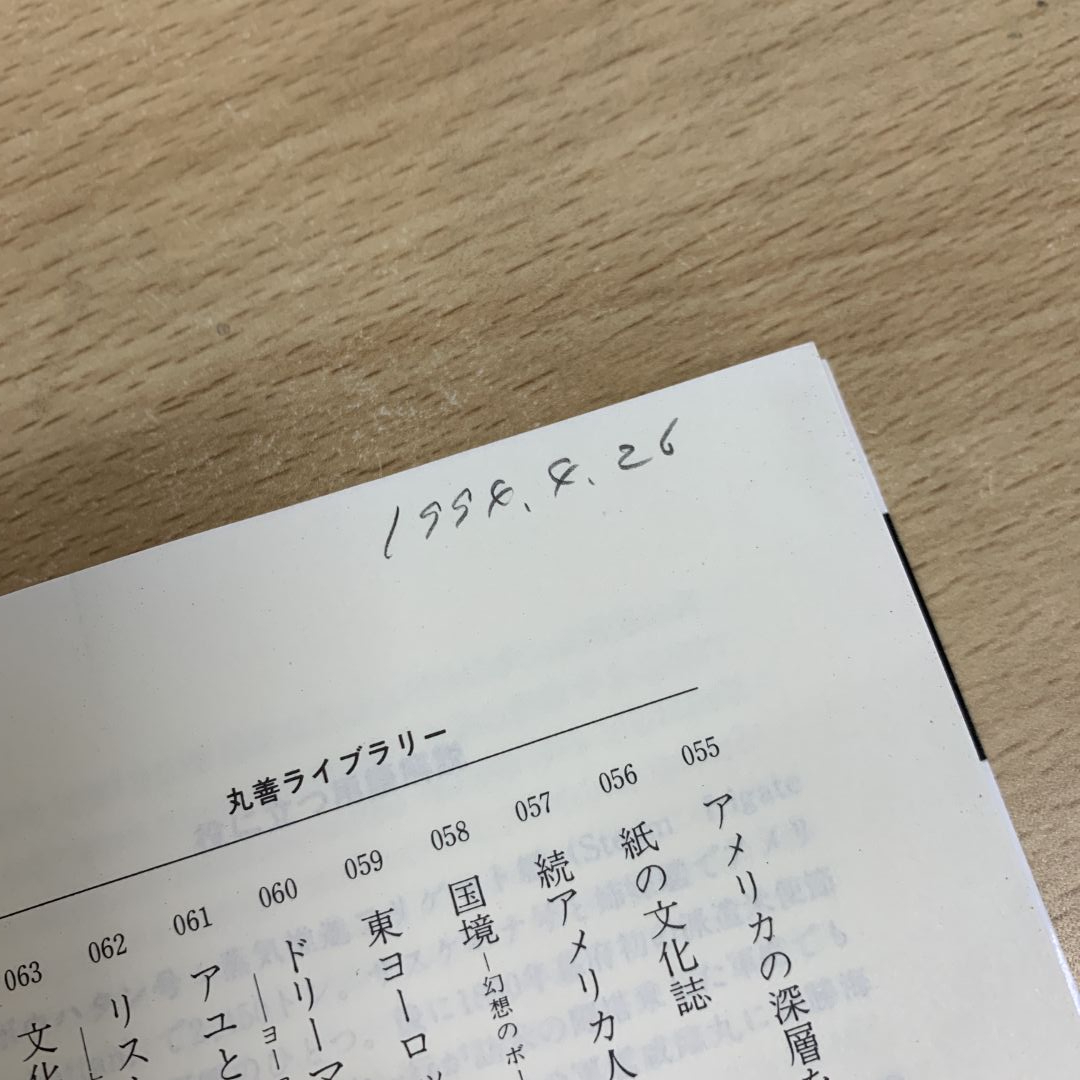 1994.4.26
丸善ライブラリー
055 アメリカの深層
056 紙の文化誌
057 続アメリカ人
058 国境─幻想のボー
059 東ヨーロッ
060 ドリーマ
─ヨー
061 アユと
062 リス
063 文化